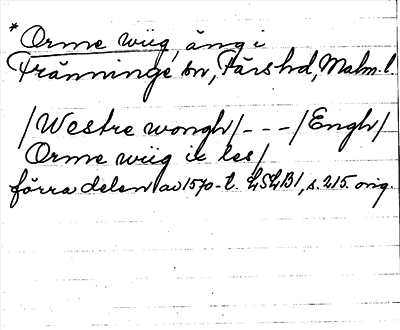 *Orme wiig, äng i
Tränninge sn, Färs hd, Malm. l.
/Westre wongh/ - - - /Engh/
Orme wiig ic les/
förra delen av 1570-t. LSLB1, s. 215. orig.